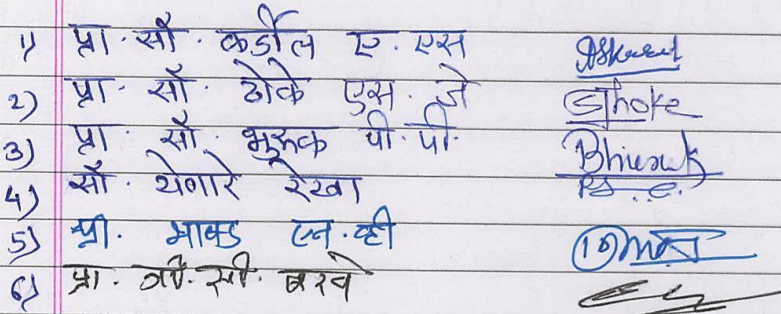 1) प्रा. सौ. कर्डील ए. एस
2) प्रा. सौ. ठोके एस. जे Sjhoke
3) प्रा. सौ. भुरुक पी. पी. Bhuruk
4) सौ. थेगारे रेखा
5) श्री. माकड एन. व्ही
6) प्रा. जी. सी. बरवे